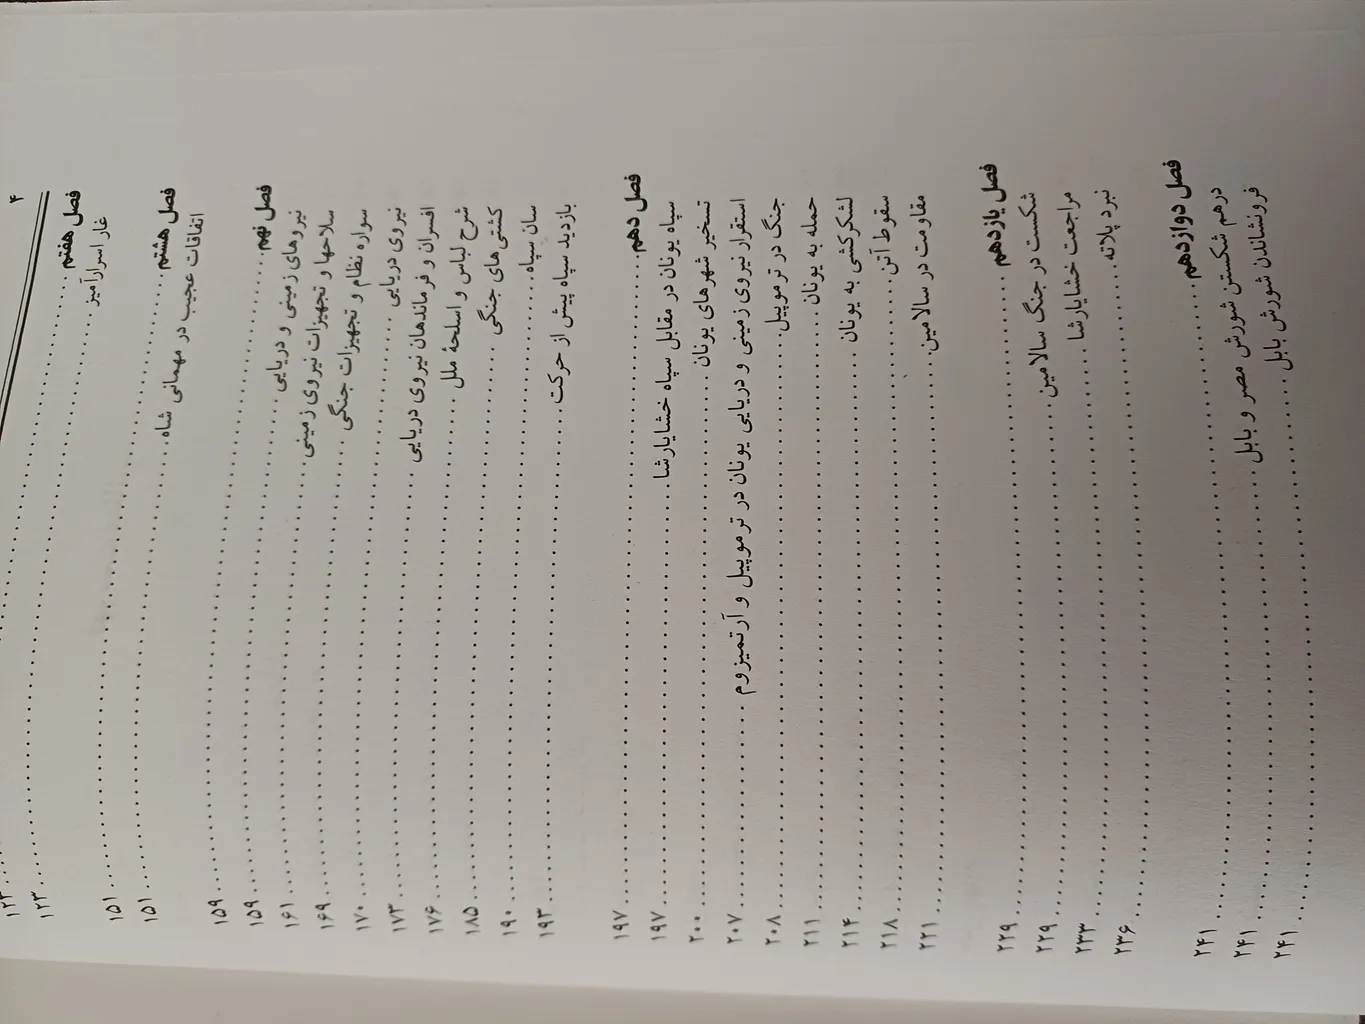 ۴
فصل هفتم ........ ۱۲۳
غار اسرارآمیز ........ ۱۲۳
فصل هشتم ........ ۱۵۱
اتفاقات عجیب در مهمانی شاه ........ ۱۵۱
فصل نهم ........ ۱۵۹
نیروهای زمینی و دریایی ........ ۱۵۹
سلاحها و تجهیزات نیروی زمینی ........ ۱۶۱
سواره نظام و تجهیزات جنگی ........ ۱۶۹
نیروی دریایی ........ ۱۷۰
افسران و فرماندهان نیروی دریایی ........ ۱۷۳
شرح لباس و اسلحهٔ ملل ........ ۱۷۶
کشتی های جنگی ........ ۱۸۵
سان سپاه ........ ۱۹۰
بازدید سپاه پیش از حرکت ........ ۱۹۳
فصل دهم ........ ۱۹۷
سپاه یونان در مقابل سپاه خشایارشا ........ ۱۹۷
تسخیر شهرهای یونان ........ ۲۰۰
استقرار نیروی زمینی و دریایی یونان در ترموپیل و آرتمیزوم ........ ۲۰۷
جنگ در ترموپیل ........ ۲۰۸
حمله به یونان ........ ۲۱۱
لشکرکشی به یونان ........ ۲۱۴
سقوط آتن ........ ۲۱۸
مقاومت در سالامین ........ ۲۲۱
فصل یازدهم ........ ۲۲۹
شکست در جنگ سالامین ........ ۲۲۹
مراجعت خشایارشا ........ ۲۳۳
نبرد پلاته ........ ۲۳۶
فصل دوازدهم ........ ۲۴۱
درهم شکستن شورش مصر و بابل ........ ۲۴۱
فرونشاندن شورش بابل ........ ۲۴۱